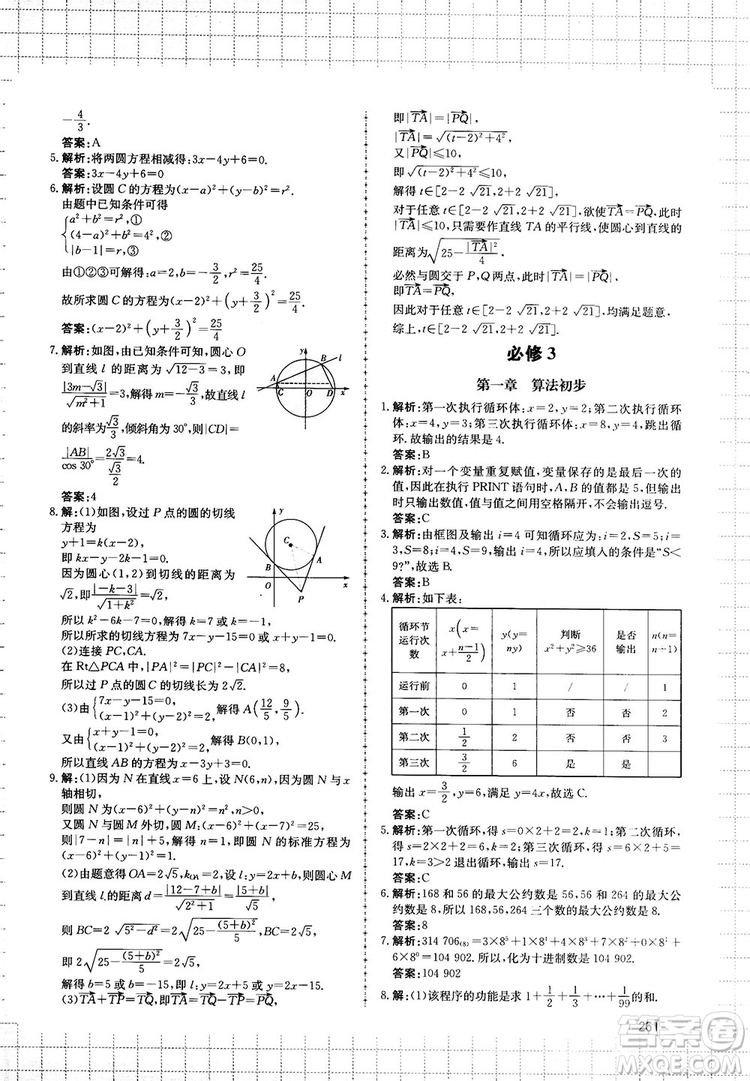 -4/3.
答案:A
5. 解析:将两圆方程相减得:3x-4y+6=0.
答案:3x-4y+6=0.
6. 解析:设圆 C 的方程为(x-a)²+(y-b)²=r².
由题中已知条件可得
{a²+b²=r²,①
(4-a)²+b²=r²,②
|b-1|=r,③
由①②③可解得 a=2,b=-3/2,r²=25/4.
故所求圆 C 的方程为(x-2)²+(y+3/2)²=25/4.
答案:(x-2)²+(y+3/2)²=25/4
7. 解析:如图,由已知条件可知,圆心 O
到直线 l 的距离为√(12-3)=3,即
|3m-√3|/√(m²+1)=3,解得 m=-√3/3,所以 l
的斜率为√3/3,倾斜角为 30°,则|CD|=
|AB|/cos 30°=2√3/(√3/2)=4.
答案:4
A B l C O D x
8. 解:(1)如图,设过 P 点的圆的切线
方程为
y+1=k(x-2),
即 kx-y-2k-1=0.
因为圆心(1,2)到切线的距离为
√2,即|-k-3|/√(1+k²)=√2,
k²-6k-7=0,解得 k=7,k=-1,
所以所求的切线方程为 7x-y-15=0或x+y-1=0.
y C A B O x P
(2)连接 PC,CA.
在 Rt△PCA 中,|PA|²=|PC|²-|CA|²=8,
所以过 P 点的圆 C 的切线长为 2√2.
(3)由{7x-y-15=0,
(x-1)²+(y-2)²=2,解得 A(12/5,9/5).
又由{x+y-1=0,
(x-1)²+(y-2)²=2,解得 B(0,1),
所以直线 AB 的方程为 x-3y+3=0.
9. 解:(1)因为 N 在直线 x=6 上,设 N(6,n),因为与 x
轴相切,
则圆 N 为(x-6)²+(y-n)²=n²,n>0,
又圆 N 与圆 M 外切,圆 M:(x-6)²+(y-7)²=25,
则|7-n|=|n|+5,解得 n=1,即圆 N 的标准方程为
(x-6)²+(y-1)²=1.
(2)由题意得 OA=2√5,kOA=2,设 l:y=2x+b,则圆心 M
到直线 l 的距离 d=|12-7+b|/√(2²+1)=|5+b|/√5,
则 BC=2√(5²-d²)=2√(25-(5+b)²/5),BC=2√5,
即 2√(25-(5+b)²/5)=2√5,
解得 b=5 或 b=-15,即 l:y=2x+5 或 y=2x-15.
(3)TA+TP=TQ,即TA=TQ-TP=PQ,
即|TA|=|PQ|,
|TA|=√((t-2)²+4²),
又|PQ|≤10,
即√((t-2)²+4²)≤10,
解得 t∈[2-2√21,2+2√21],
对于任意 t∈[2-2√21,2+2√21],欲使TA=PQ,此时
|TA|≤10,只需要作直线 TA 的平行线,使圆心到直线的
距离为√(25-|TA|²/4),
必然与圆交于 P,Q 两点,此时|TA|=|PQ|,
即TA=PQ,
因此对于任意 t∈[2-2√21,2+2√21],均满足题意,
综上,t∈[2-2√21,2+2√21].
必修 3
第一章 算法初步
1. 解析:第一次执行循环体:x=2,y=2;第二次执行循环
体:x=4,y=3;第三次执行循环体:x=8,y=4,跳出循
环.故输出的结果是 4.
答案:B
2. 解析:对一个变量重复赋值,变量保存的是最后一次的
值,因此在执行 PRINT 语句时,A,B 的值都是 5,又因为
只输出数值,值与值之间用空格隔开,不会输出逗号.
答案:C
3. 解析:由框图及输出 i=4 可知循环应为:i=2,S=5;i=
3,S=8;i=4,S=9,输出 i=4,所以应填入的条件是“S<
9?”,故选 B.
答案:B
4. 解析:如下表:
循环节运行次数 x(x=x+(n-1)/2) y(y=ny) 判断x²+y²≥36 是否输出 n(n=n+1)
运行前 0 1 / / 1
第一次 0 1 否 否 2
第二次 1/2 2 否 否 3
第三次 3/2 6 是 是
输出 x=3/2,y=6,满足 y=4x,故选 C.
答案:C
5. 解析:第一次循环,得 s=0×2+2=2,k=1;第二次循环,
得 s=2×2+2=6,k=2;第三次循环,得 s=6×2+5=17,
k=3>2,退出循环,输出 s=17.
答案:C
6. 解析:168 和 56 的最大公约数是 56,56 和 264 的最大公
约数是 8,所以 168,56,264 三个数的最大公约数是 8.
答案:8
7. 解析:314 706₍₈₎=3×8⁵+1×8⁴+4×8³+7×8²+0×8¹
+6×8⁰=104 902,所以,化为十进制数是 104 902.
答案:104 902
8. 解:(1)该程序的功能是求 1+1/2+1/3+…+1/99的和.
261
答案圈
MXQE.COM